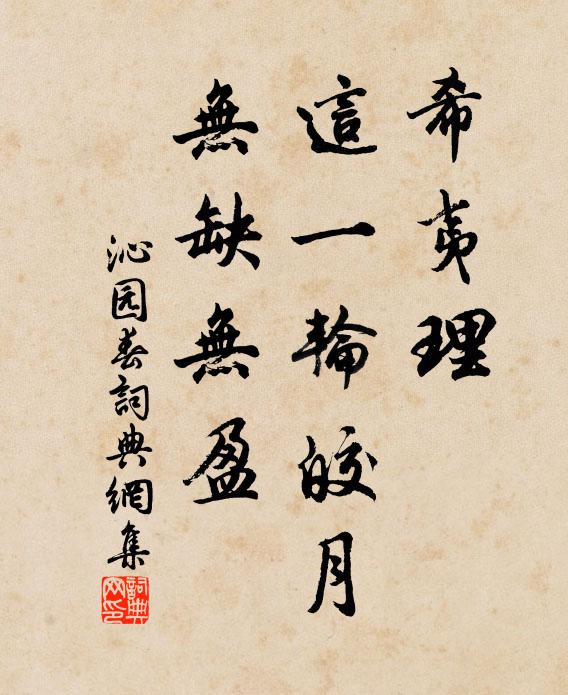 希夷理
這一輪皎月
無缺無盈
沁园春詞典網集
詞典網印